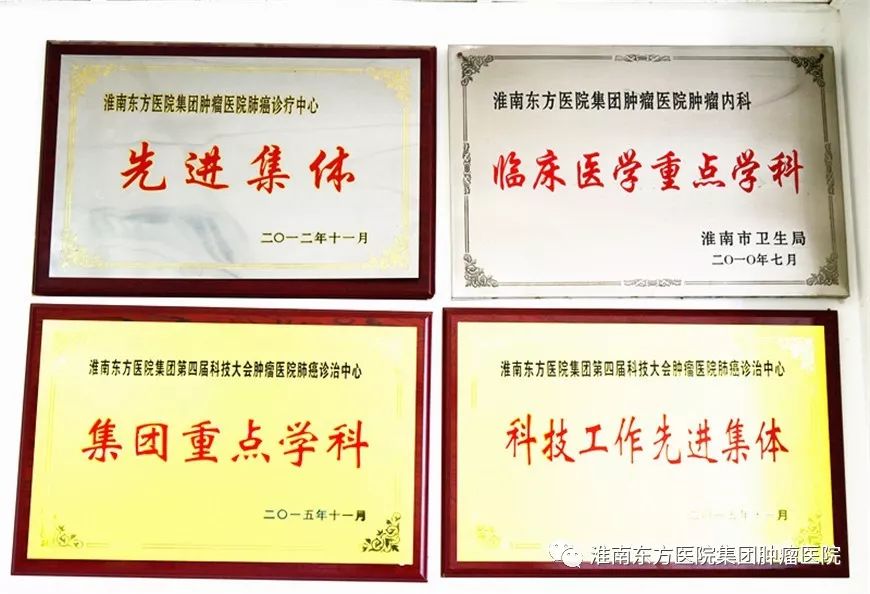 淮南东方医院集团肿瘤医院肺癌诊疗中心
先进集体
二〇一二年十一月
淮南东方医院集团肿瘤医院肿瘤内科
临床医学重点学科
淮南市卫生局
二〇一〇年七月
淮南东方医院集团第四届科技大会肿瘤医院肺癌诊治中心
集团重点学科
二〇一五年十一月
淮南东方医院集团第四届科技大会肿瘤医院肺癌诊治中心
科技工作先进集体
二〇一五年十一月
淮南东方医院集团肿瘤医院